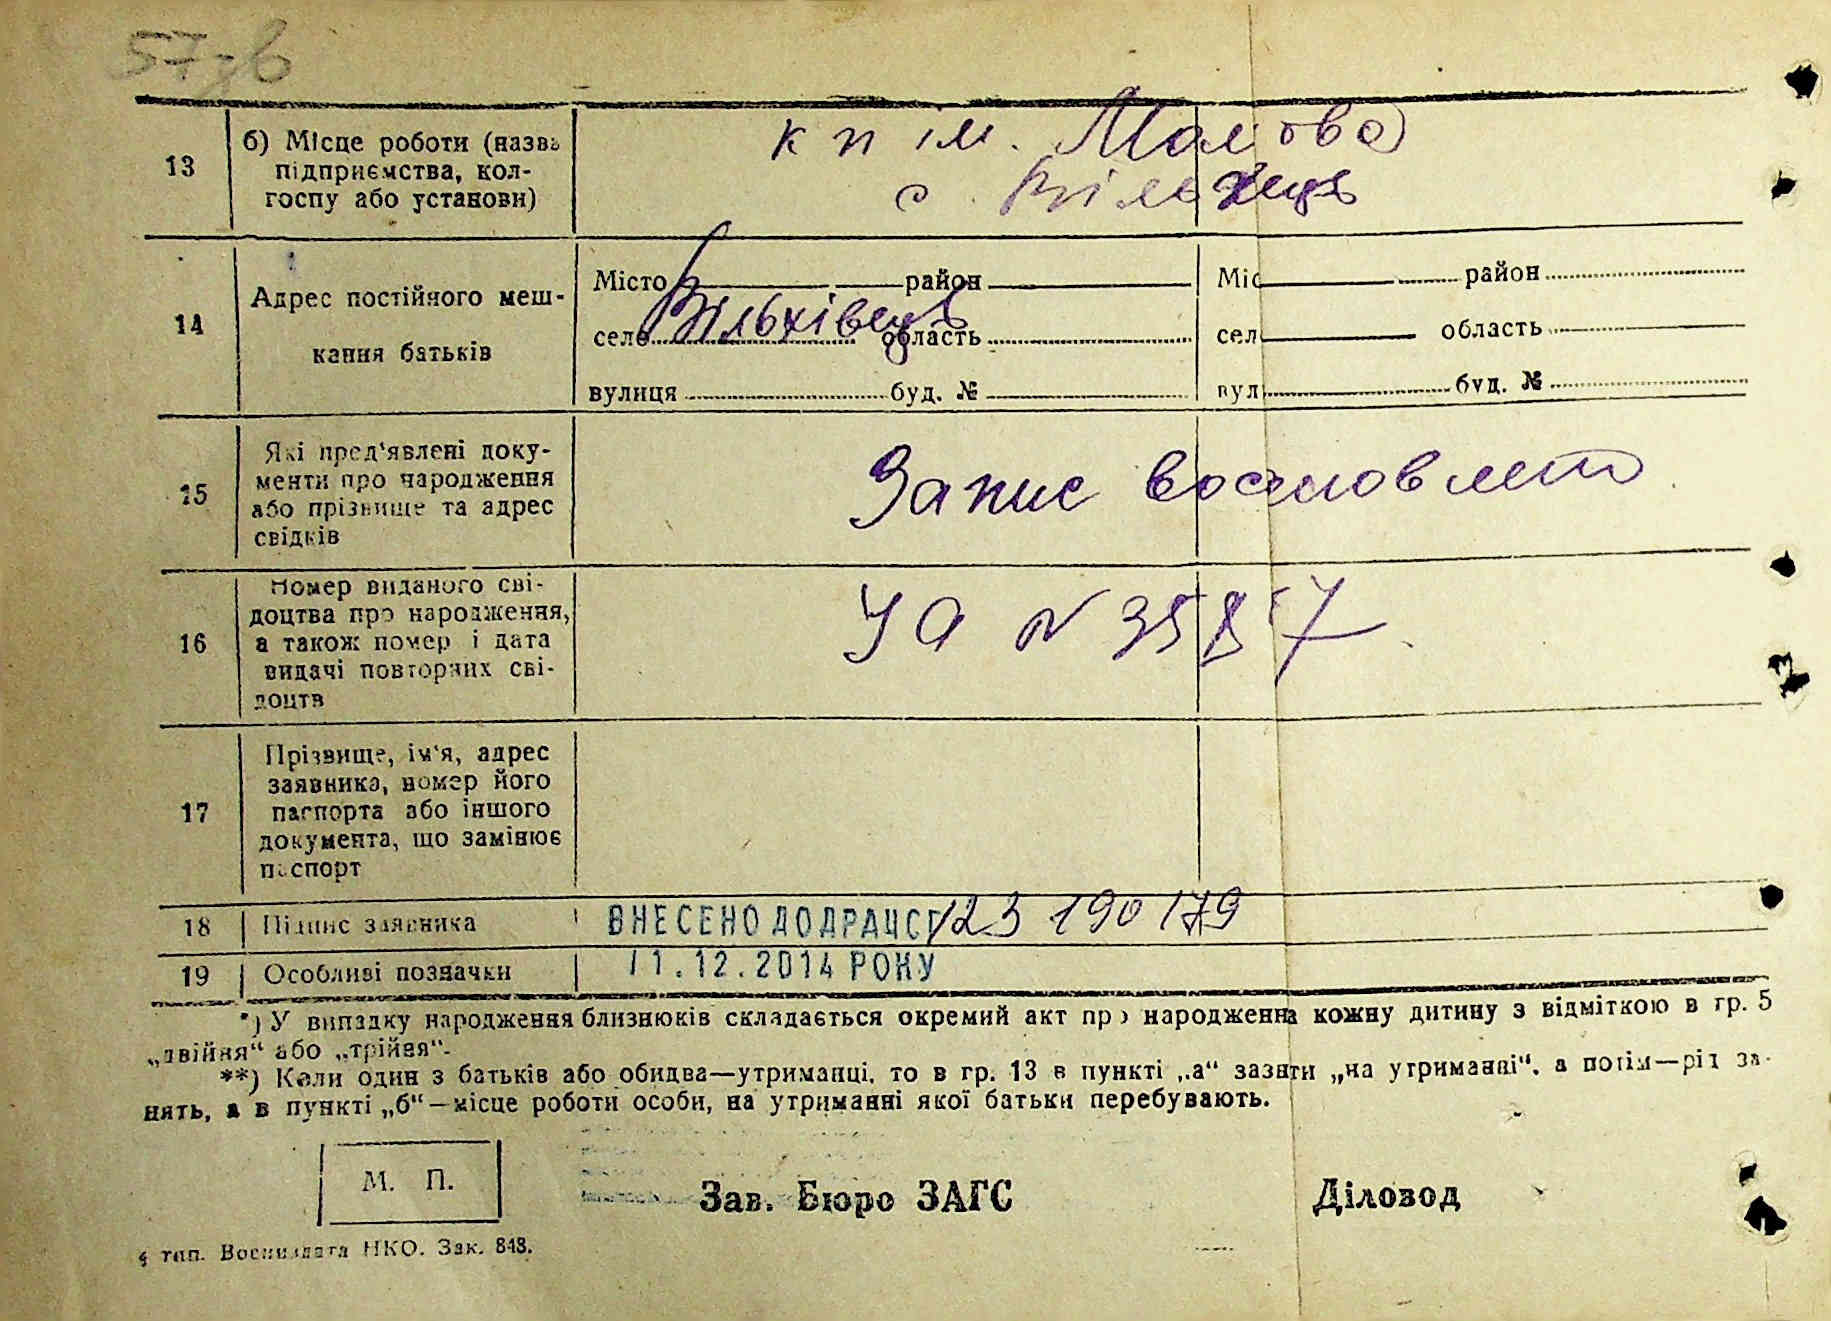 13
б) Місце роботи (назва
підприємства, кол-
госпу або установи)
к п ім.
с.
14
Адрес постійного меш-
кання батьків
Місто район
село Вільхівець область
вулиця буд. №
Міс район
сел область
вул буд. №
15
Які пред'явлені доку-
менти про народження
або прізвище та адрес
свідків
Запис восстновлено
16
Номер виданого сві-
доцтва про народження,
а також номер і дата
видачі повторних сві-
доцтв
УА N 3587
17
Прізвище, ім'я, адрес
заявника, номер його
паспорта або іншого
документа, що замінює
паспорт
18
Підпис заявника
ВНЕСЕНО ДО ДРАЦСГ 123 190 179
19
Особливі позначки
11.12.2014 РОКУ
*) У випадку народження близнюків складається окремий акт про народження кожну дитину з відміткою в гр. 5
„двійня“ або „трійня“.
**) Коли один з батьків або обидва—утриманці, то в гр. 13 в пункті „а“ зазнти „на утриманні“, а потім—рід за-
нять, а в пункті „б“—місце роботи особи, на утриманні якої батьки перебувають.
М. П.
Зав. Бюро ЗАГС
Діловод
тип. Воениздата НКО. Зак. 848.